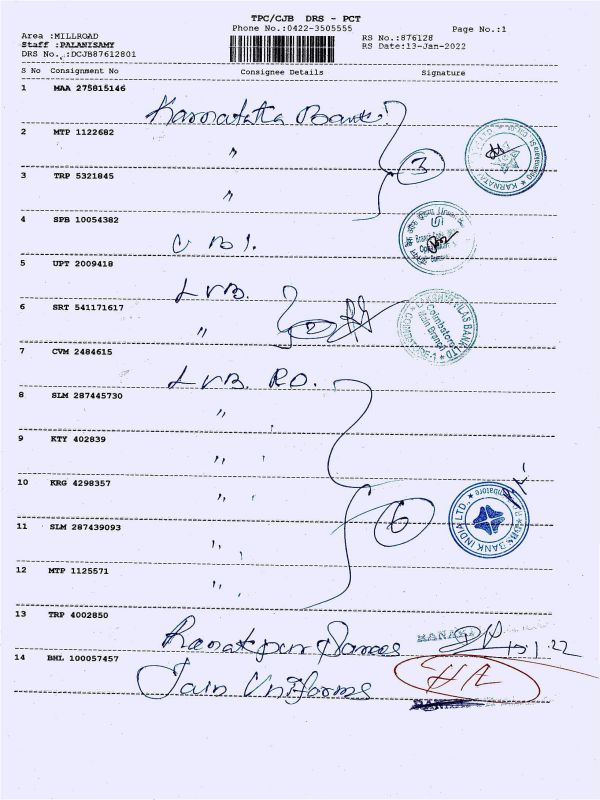 TPC/CJB DRS - PCT
Phone No.:0422-3505555
Page No.:1
Area :MILLROAD
RS No.:876128
Staff :PALANISAMY
RS Date:13-Jan-2022
DRS No.:DCJB87612801
S No Consignment No Consignee Details Signature
1 MAA 275815146
Karnataka Bank
2 MTP 1122682
"
3 TRP 5321845
"
3
4 SPB 10054382
5 UPT 2009418
LVB.
6 SRT 541171617
"
2
Coimbatore
Main Branch
7 CVM 2484615
LVB. RO.
8 SLM 287445730
"
9 KTY 402839
"
10 KRG 4298357
"
11 SLM 287439093
"
12 MTP 1125571
"
6
BANK INDIA LTD.
13 TRP 4002850
14 BHL 100057457
Jain Uniforms